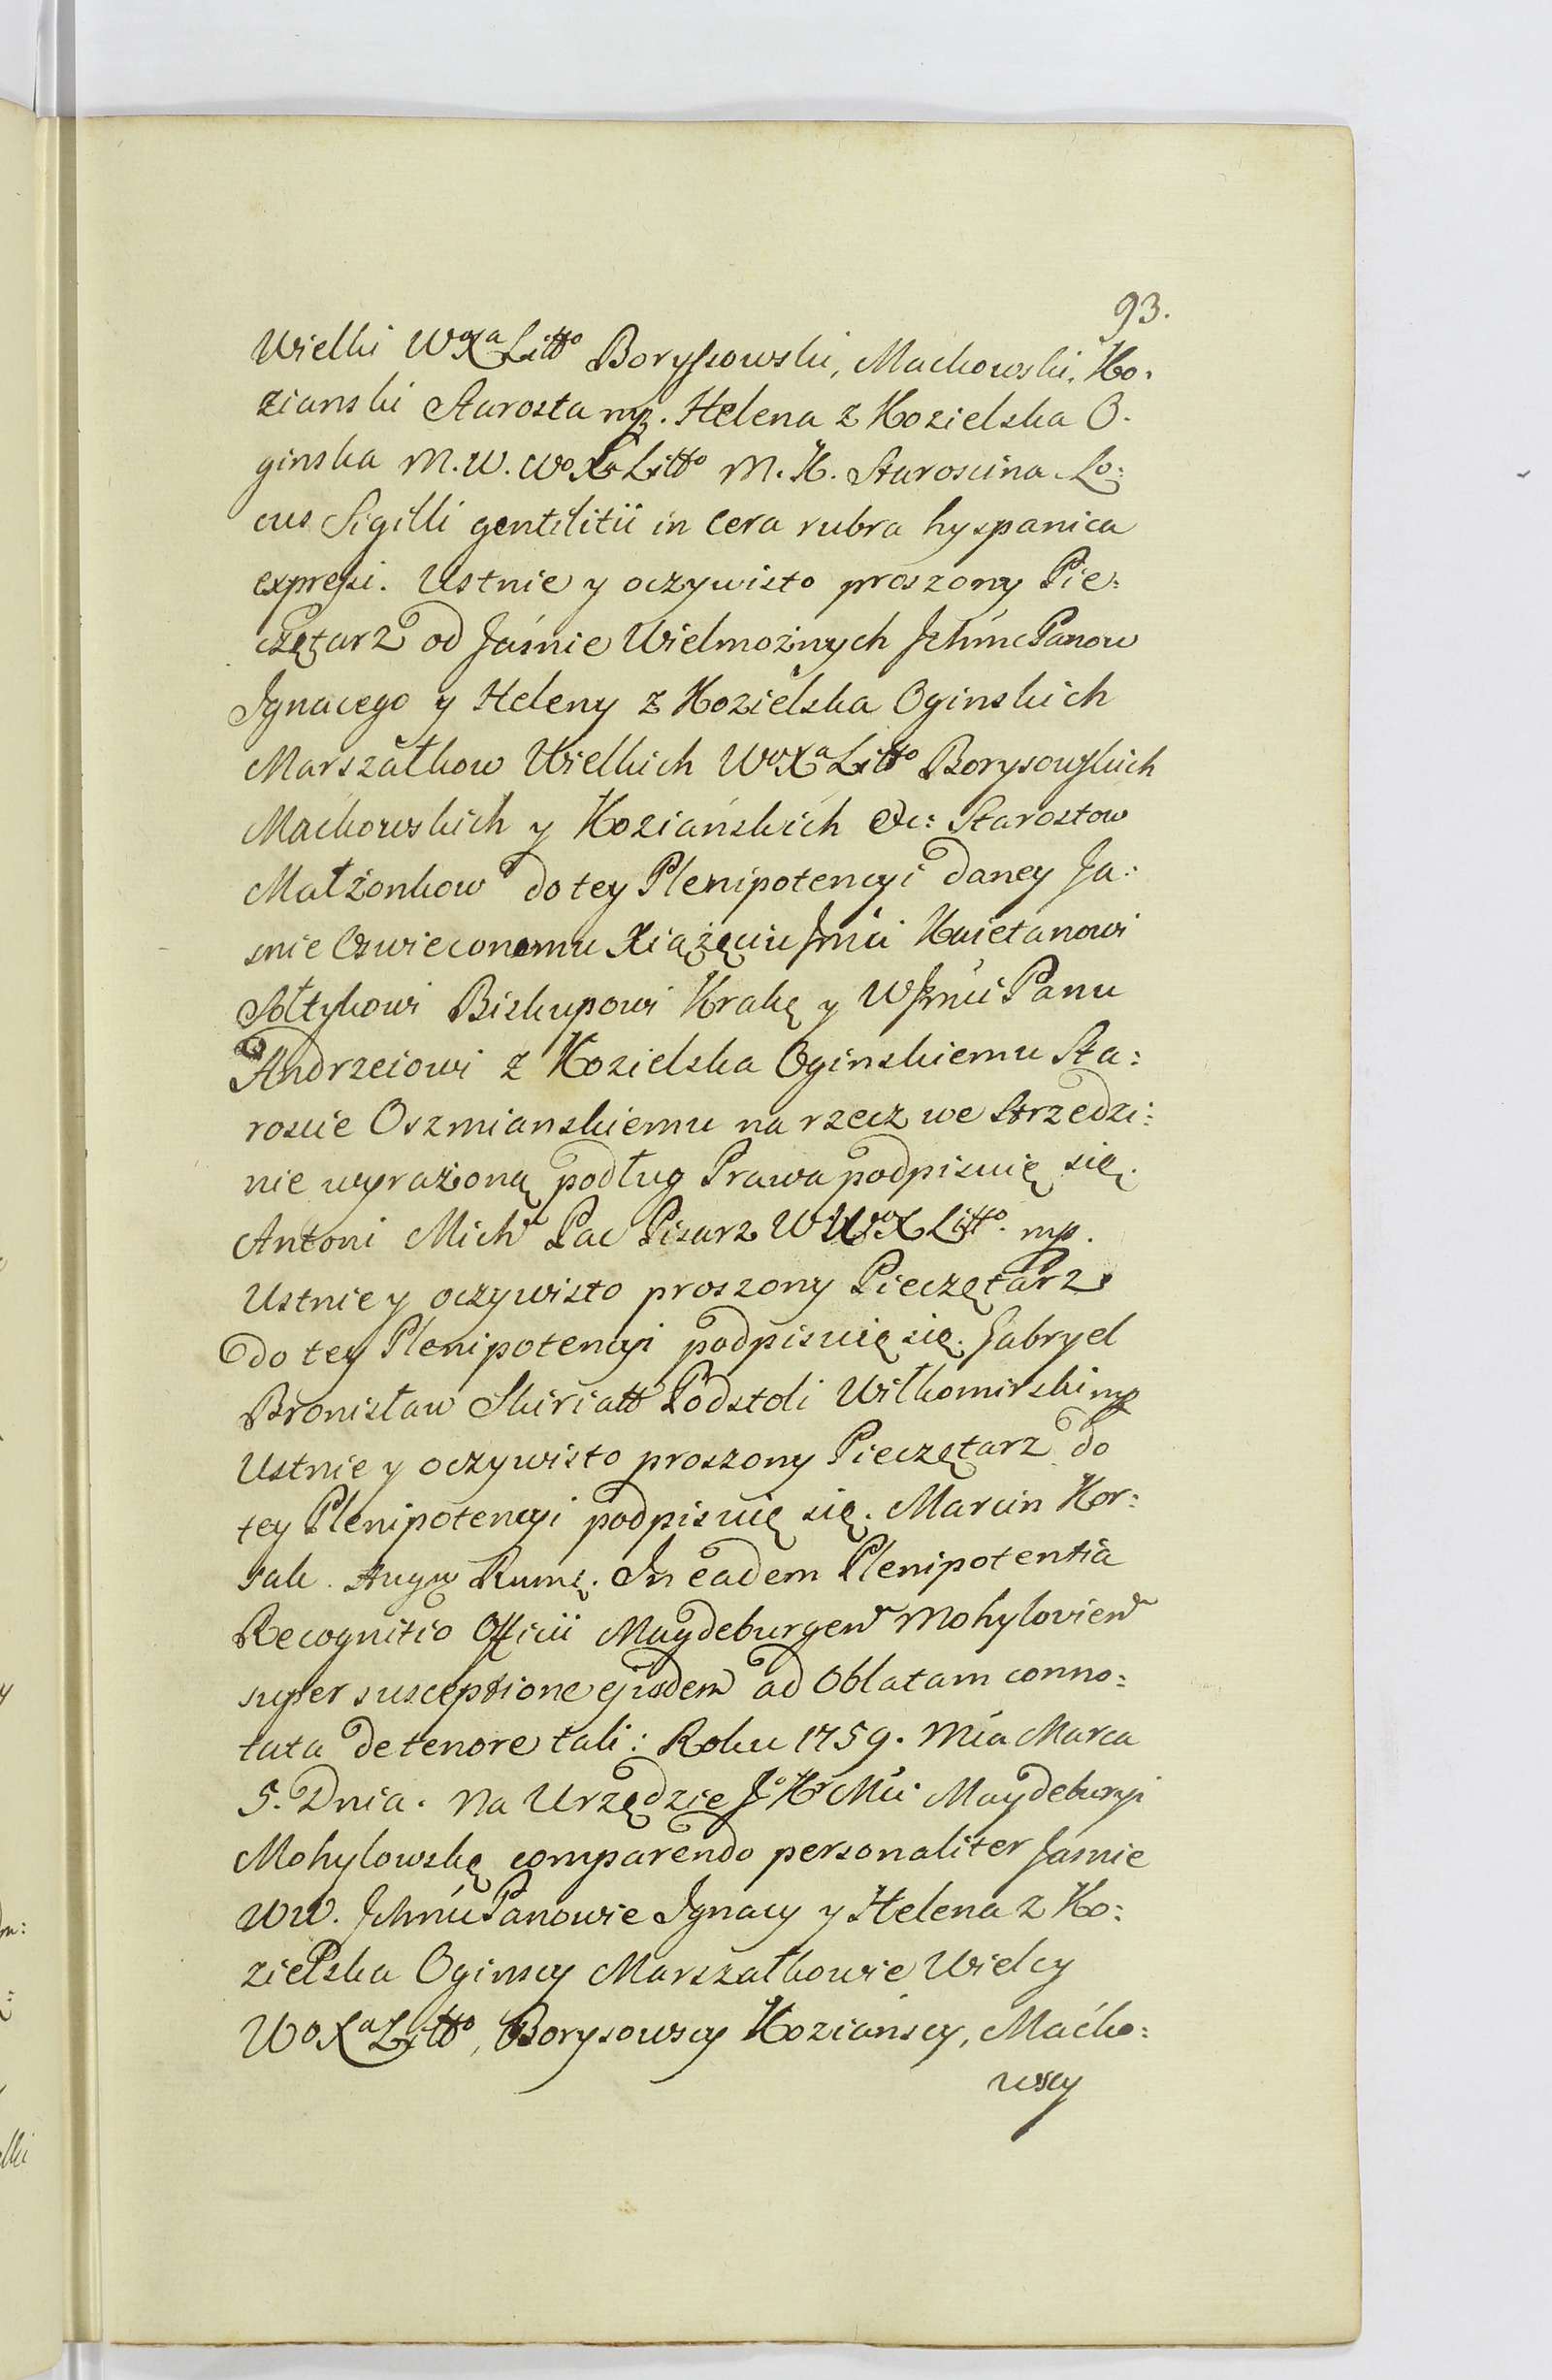 93.
Wielki WoXa Litto Boryssowski, Mackowski, Ko.
zianski Starosta mp. Helena z Kozielska O.
ginska M. W. Wo Xa Litto M. K. Staroscina Lo:
cus Sigilli gentilitii in cera rubra hyspanica
expressi. Ustnie y oczywisto proszony Pie:
czętarz od Jaśnie Wielmożnych Jchmc Panow
Ignacego y Heleny z Kozielska Oginskich
Marszałkow Wielkich WoXa Litto Borysowskich
Maćkowskich y Koziańskich &c: Starostow
Małżonkow do tey Plenipotencyi daney Ja:
snie Oswieconemu Xiążęciu Jmci Kaietanowi
Sołtykowi Biskupowi Krakę y WJmci Panu
Andrzeiowi z Kozielska Oginskiemu Sta:
roscie Oszmianskiemu na rzecz we Strzedzi:
nie wyrażoną podług Prawa podpisuię się.
Antoni Mich Pac Pisarz W WoX Litto. mp.
Ustnie y oczywisto proszony Pieczętarz
do tey Plenipotencyi podpisuię się. Gabryel
Bronisław Skiriatt Podstoli Wiłkomirski mp
Ustnie y oczywisto proszony Pieczętarz do
tey Plenipotencyi podpisuię się. Marcin Kor:
sak. Rumę. In eadem Plenipotentia
Recognitio Officii Magdeburgen Mohylovien
super susceptione ejusdem ad Oblatam conno:
tata de tenore tali: Roku 1759. Mca Marca
5. Dnia. Na Urzędzie Jo Kr Mci Magdeburyi
Mohylowskę comparendo personaliter Jasnie
WW. Jchmc Panowie Ignacy y Helena z Ko:
zielska Oginscy Marszałkowie Wielcy
WoXa Litto, Borysowscy Koziańscy, Maćko:
wscy